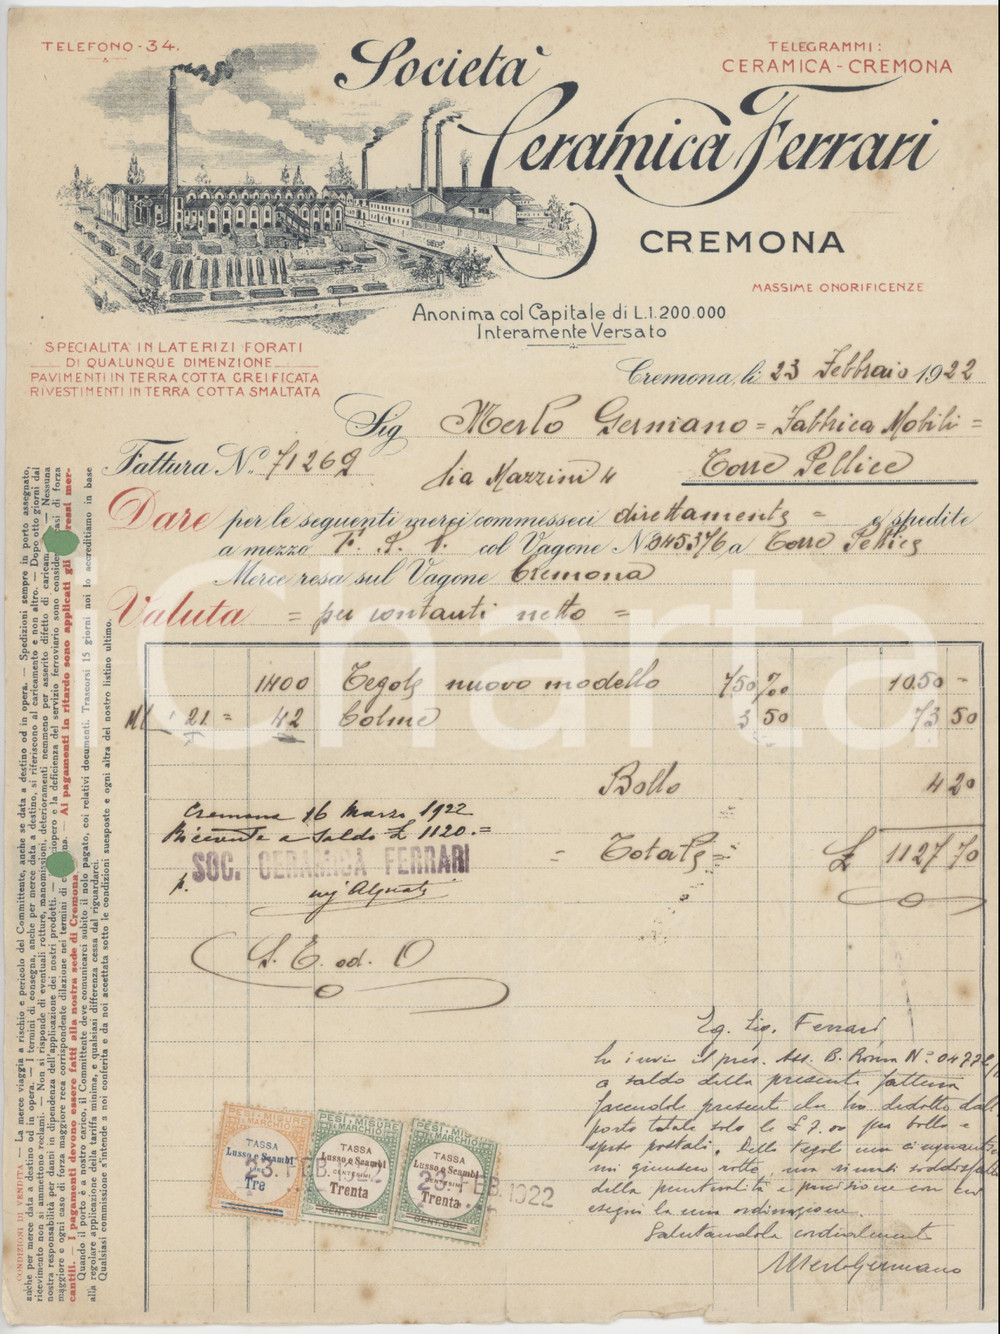 TELEFONO - 34.
Società
Ceramica Ferrari
CREMONA
TELEGRAMMI:
CERAMICA - CREMONA
MASSIME ONORIFICENZE
Anonima col Capitale di L. 1.200.000
Interamente Versato
SPECIALITA' IN LATERIZI FORATI
DI QUALUNQUE DIMENZIONE
PAVIMENTI IN TERRA COTTA GREIFICATA
RIVESTIMENTI IN TERRA COTTA SMALTATA
Cremona, li 23 Febbraio 1922
Sig Merlo Germano = Fabbrica Mobili =
Fattura N. 71269 Via Mazzini 4 Torre Pellice
Dare per le seguenti merci commesseci direttamente = e spedite
a mezzo F. P. V. col Vagone N. 345376 a Torre Pellice
Merce resa sul Vagone Cremona
Valuta = per contanti netto =
1400 Tegole nuovo modello 750 ‰ 1050 -
Ml 21 = 42 Colme 3 50 73 50
Bollo 4 20
Cremona 16 Marzo 1922
Ricevute a saldo £ 1120. =
= Totale = £ 1127 70
SOC. CERAMICA FERRARI
p.
S. E. od. O
Eg. Sig. Ferrari
in invio il pres. Ass. B. Roma N°
a saldo della presente fattura
facendole presente che ho dedotto dal
porto totale solo le £ 7.00 per bollo e
spese postali. Delle tegole una cinquantina
mi giunsero rotte,
della puntualità e precisione con cui
eseguì la mia ordinazione.
Salutandola cordialmente
Merlo Germano
PESI E MISURE E MARCHIO
TASSA
Lusso e Scambi
Lire
Tre
PESI E MISURE E MARCHIO
TASSA
Lusso e Scambi
CENTESIMI
Trenta
CENT. DUE
PESI E MISURE E MARCHIO
TASSA
Lusso e Scambi
CENTESIMI
Trenta
CENT. DUE
23. FEB. 1922
23. FEB. 1922
CONDIZIONI DI VENDITA — La merce viaggia a rischio e pericolo del Committente, anche se data a destino od in opera. — Spedizioni sempre in porto assegnato,
anche per merce data a destino od in opera. — I termini di consegna, anche per merce data a destino, si riferiscono al caricamento e non altro. — Dopo otto giorni dal
ricevimento non si ammettono reclami. — Non si risponde di eventuali rotture, manomissioni, deterioramenti nemmeno per asserito difetto di carica. — Nessuna
nostra responsabilità per danni in dipendenza dell'applicazione dei nostri prodotti. — sciopero e la deficienza del servizio ferroviario sono considerati casi di forza
maggiore e ogni caso di forza maggiore reca corrispondente dilazione nei termini di — Ai pagamenti in ritardo sono applicati gli interessi mer-
cantili. — I pagamenti devono essere fatti alla nostra sede di Cremona.
Quando il porto è a nostro carico, il Committente deve comunicarci subito il nolo pagato, coi relativi documenti. Trascursi 15 giorni noi lo accreditiamo in base
alla regolare applicazione della tariffa minima, e qualsiasi differenza cessa dal riguardarci.
Qualsiasi commissione s'intende a noi conferita e da noi accettata sotto le condizioni suesposte e ogni altra del nostro listino ultimo.
Charta